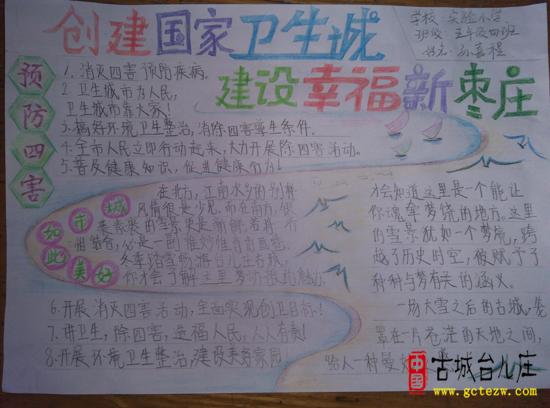 创建国家卫生城
建设幸福新枣庄
学校 实验小学
班级 五年级四班
预防四害
1.消灭四害 预防疾病。
2.卫生城市为人民，
卫生城市靠大家！
3.搞好环境卫生整治，消除四害孳生条件。
4.全市人民立即行动起来，大力开展除四害活动。
5.普及健康知识，促进健康行为！
如此
城市美好
在北方，江南水乡的别样
风情很是少见，而在南方，
冬季踏雪畅游台儿庄古城，
你才会了解这里
才会知道这里是一个能让
你魂牵梦绕的地方。这里
的雪景犹如一个梦境，跨
越了历史时空，被赋予了
种种与梦有关的涵义。
一场大雪之后的古城，笼
罩在一片苍茫的天地之间，
给人一种曼妙
6.开展消灭四害活动，全面实现创卫目标！
7.讲卫生，除四害，造福人民，人人有责！
8.开展环境卫生整治，建设美好家园！
中国 古城台儿庄
www.gctezw.com